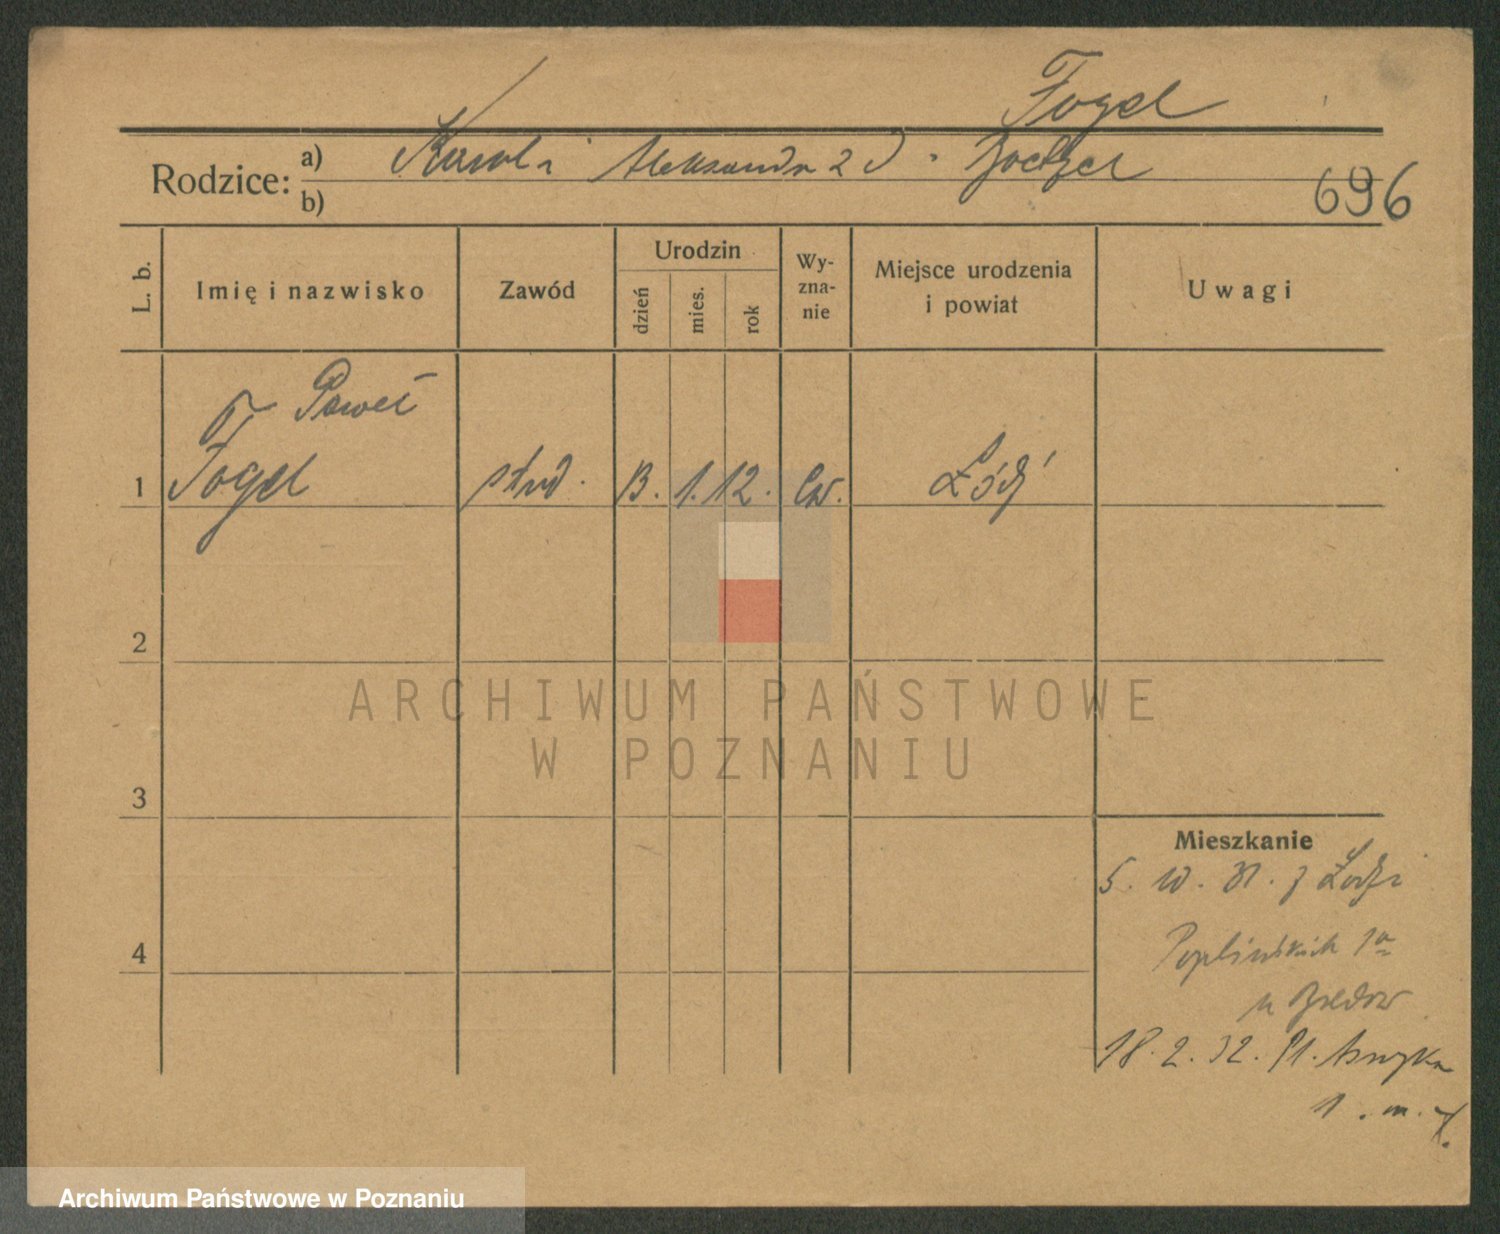 Fogel
Rodzice: a) Karol i Aleksandra z d.
b)
696
L. b.
Imię i nazwisko
Zawód
Urodzin
dzień
mies.
rok
Wy-
zna-
nie
Miejsce urodzenia
i powiat
Uwagi
Paweł
1 Fogel stud. 13. 1. 12. Ew. Łódź
2
3
4
Mieszkanie
5. 10. 31. z Łodzi
Poplińskich 1a
u
18. 2. 32. Pl.
1. m. 7.
ARCHIWUM PAŃSTWOWE
W POZNANIU
Archiwum Państwowe w Poznaniu